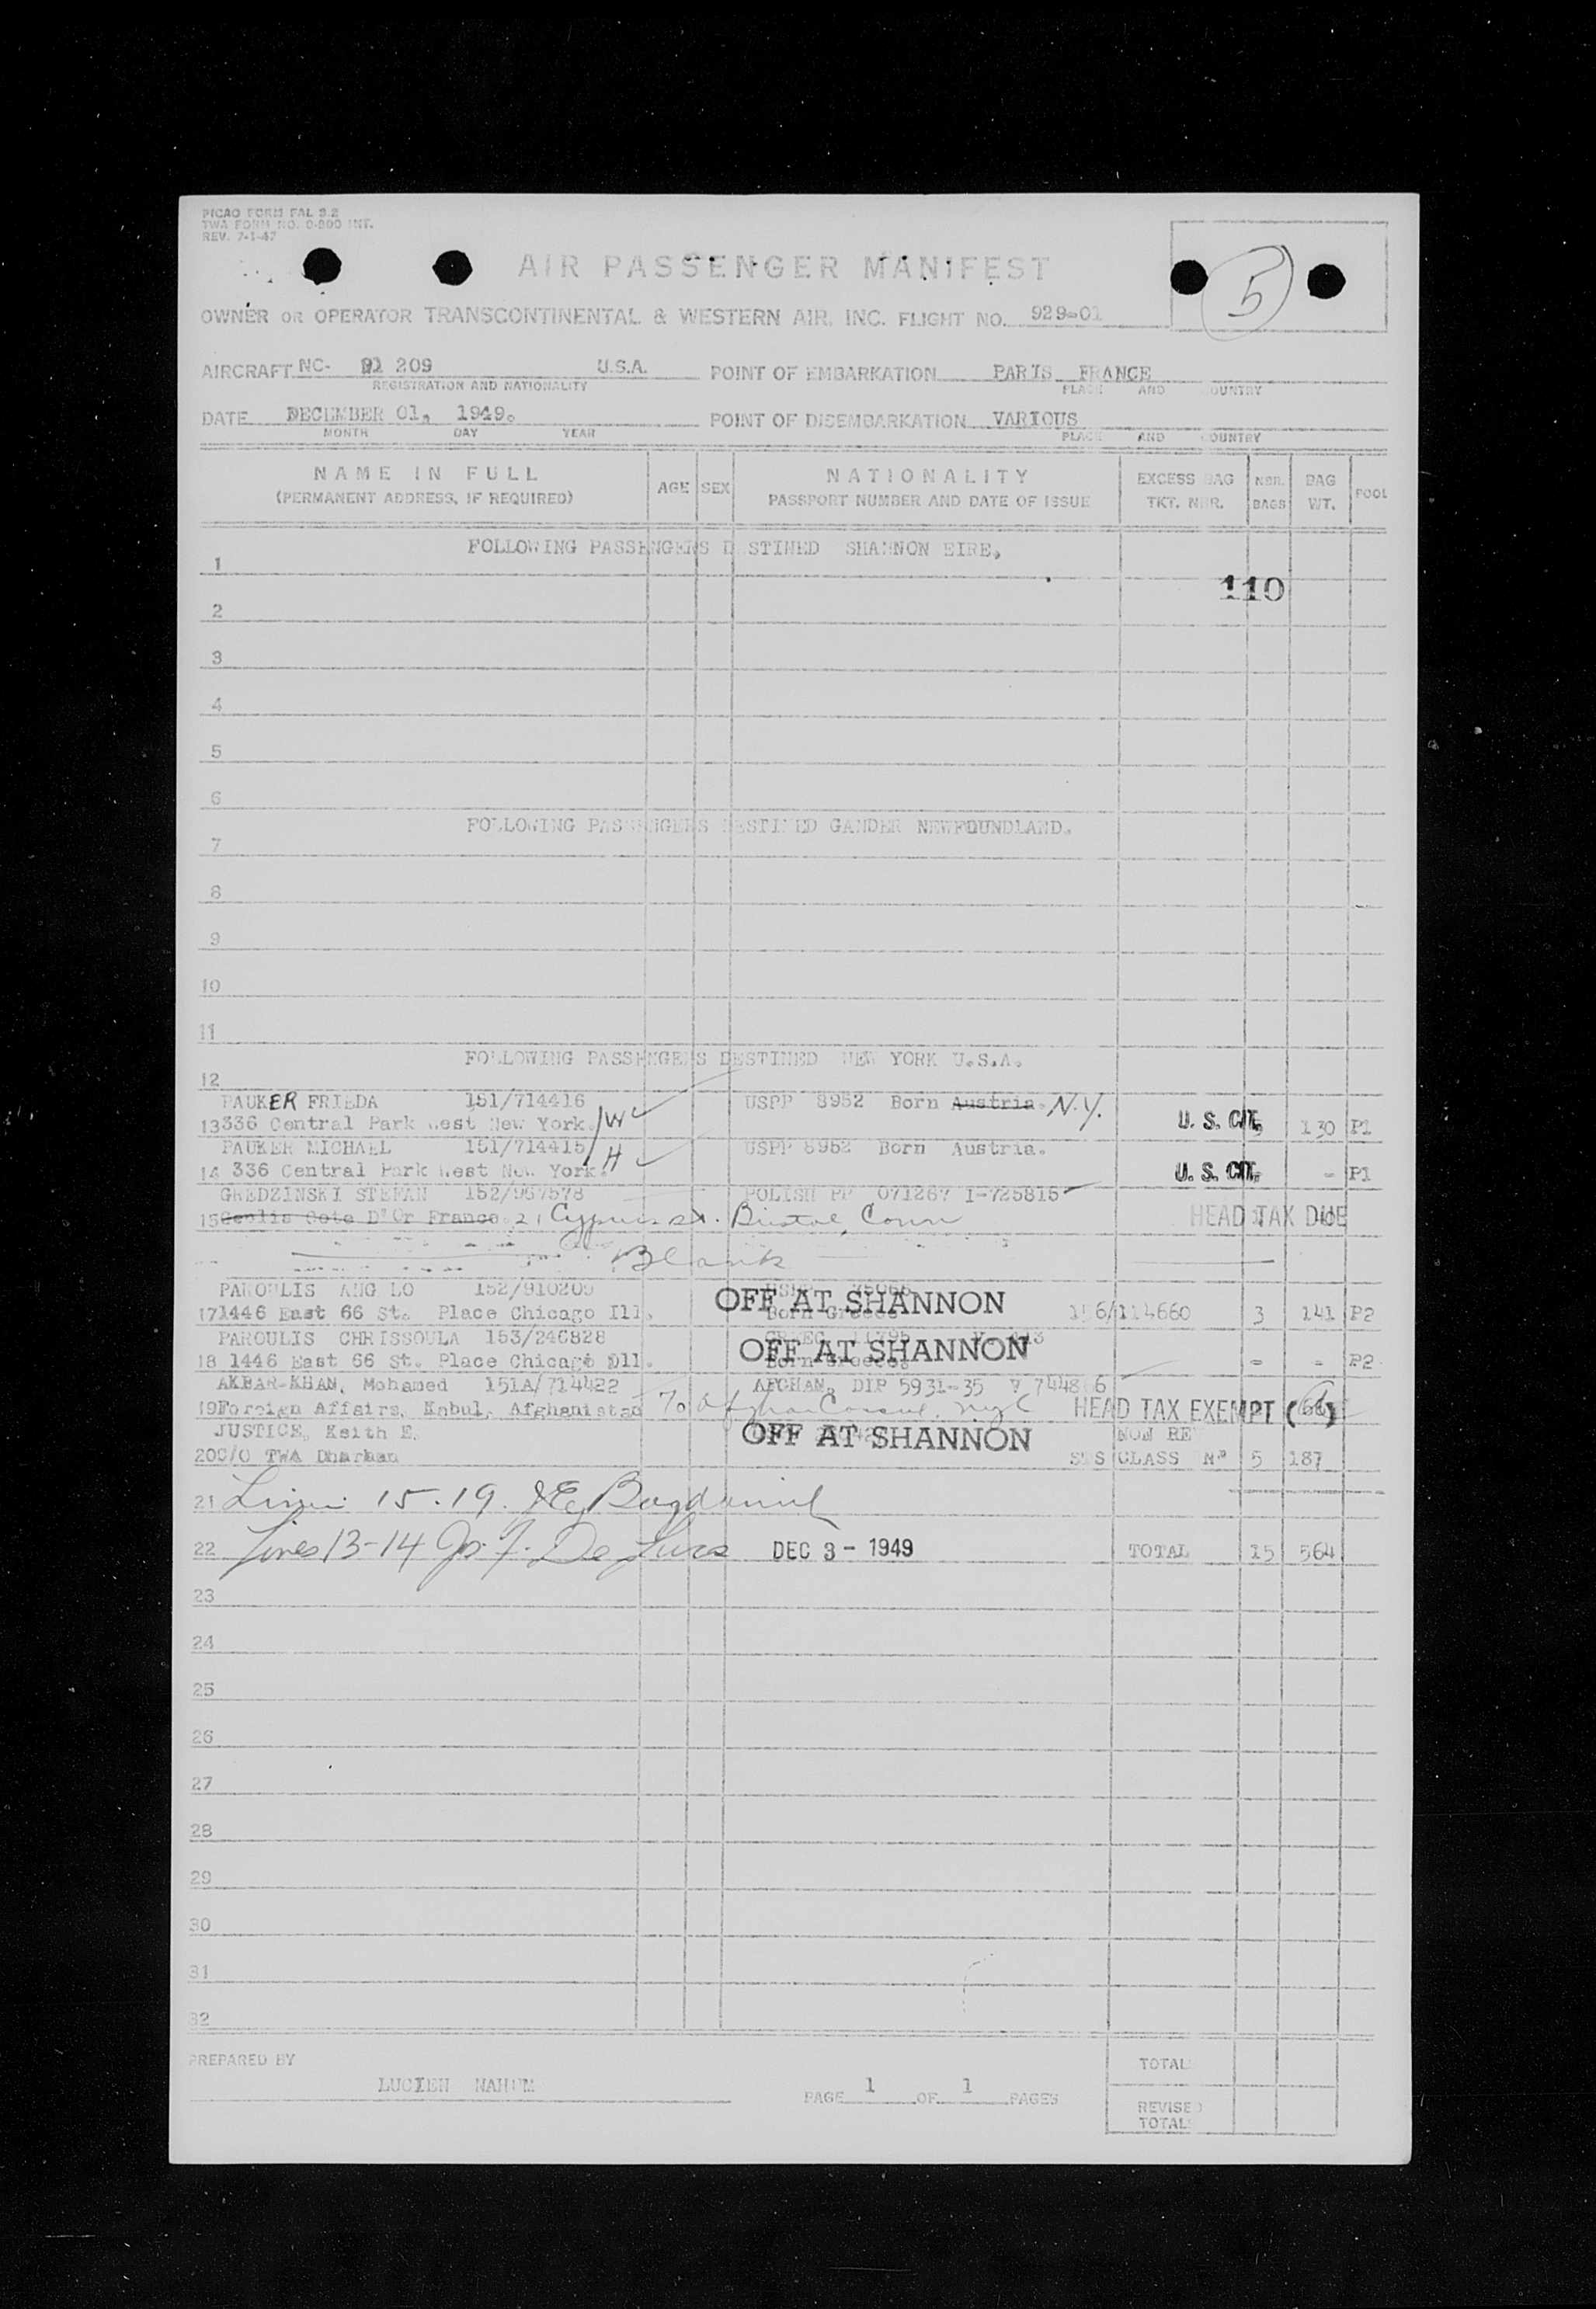 PICAO FORM FAL 3.2
TWA FORM NO. 0-900 INT.
REV. 7-1-47
AIR PASSENGER MANIFEST
5
OWNER OR OPERATOR TRANSCONTINENTAL & WESTERN AIR, INC. FLIGHT NO. 929-01
AIRCRAFT NC- 91 209 U.S.A. POINT OF EMBARKATION PARIS FRANCE
REGISTRATION AND NATIONALITY PLACE AND COUNTRY
DATE DECEMBER 01, 1949. POINT OF DISEMBARKATION VARIOUS
MONTH DAY YEAR PLACE AND COUNTRY
NAME IN FULL AGE SEX NATIONALITY EXCESS BAG NBR. BAG POOL
(PERMANENT ADDRESS, IF REQUIRED) PASSPORT NUMBER AND DATE OF ISSUE TKT. NBR. BAGS WT.
FOLLOWING PASSENGERS DESTINED SHANNON EIRE.
1
110
2
3
4
5
6
FOLLOWING PASSENGERS DESTINED GANDER NEWFOUNDLAND.
7
8
9
10
11
FOLLOWING PASSENGERS DESTINED NEW YORK U.S.A.
12
PAUKER FRIEDA 151/714416 USPP 8952 Born Austria. N.Y.
13 336 Central Park West New York. W U. S. CIT. 130 P1
PAUKER MICHAEL 151/714415 USPP 8952 Born Austria.
14 336 Central Park West New York. H U. S. CIT. - P1
GREDZINSKI STEFAN 152/967578 POLISH PP 071267 I-725815
15 Cote D'Or France 21 Cypress St. Bristol, Conn HEAD TAX DUE
Blank
PAROULIS ANG LO 152/910209
OFF AT SHANNON
17 1446 East 66 St. Place Chicago Ill. Born Greece 156/114660 3 141 P2
PAROULIS CHRISSOULA 153/246828
OFF AT SHANNON
18 1446 East 66 St. Place Chicago Ill. Born Greece - - P2
AKBAR-KHAN, Mohamed 151A/714422 AFGHAN, DIP 5931-35 V 744866
19 Foreign Affairs, Kabul, Afghanistan To Afghan Consul, NYC HEAD TAX EXEMPT (66)
JUSTICE, Keith E. OFF AT SHANNON NON RE
20 C/O TWA Dharhan CLASS 5 187
21 Lines 15.19.
22 Lines 13-14 Jos. F. De Luca DEC 3 - 1949 TOTAL 15 564
23
24
25
26
27
28
29
30
31
32
PREPARED BY TOTAL
LUCIEN NAHUM PAGE 1 OF 1 PAGES
REVISED
TOTAL